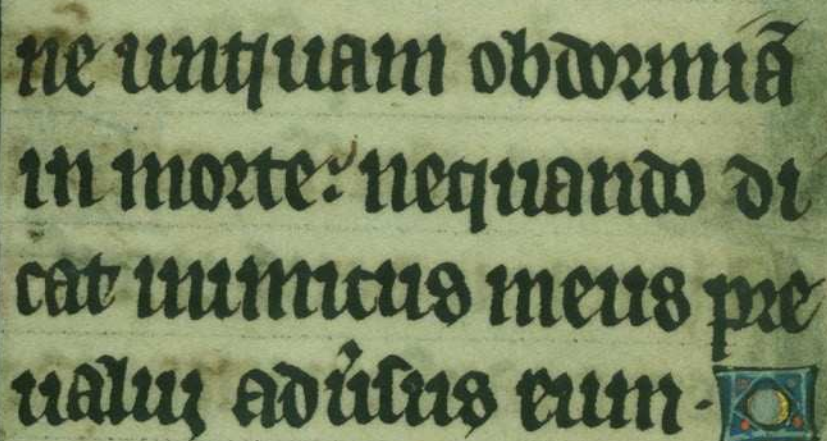 ne unq̃uam obdormiã
in morte: nequando di
cat inimicus meus pre
ualuj adu̾sus eum.